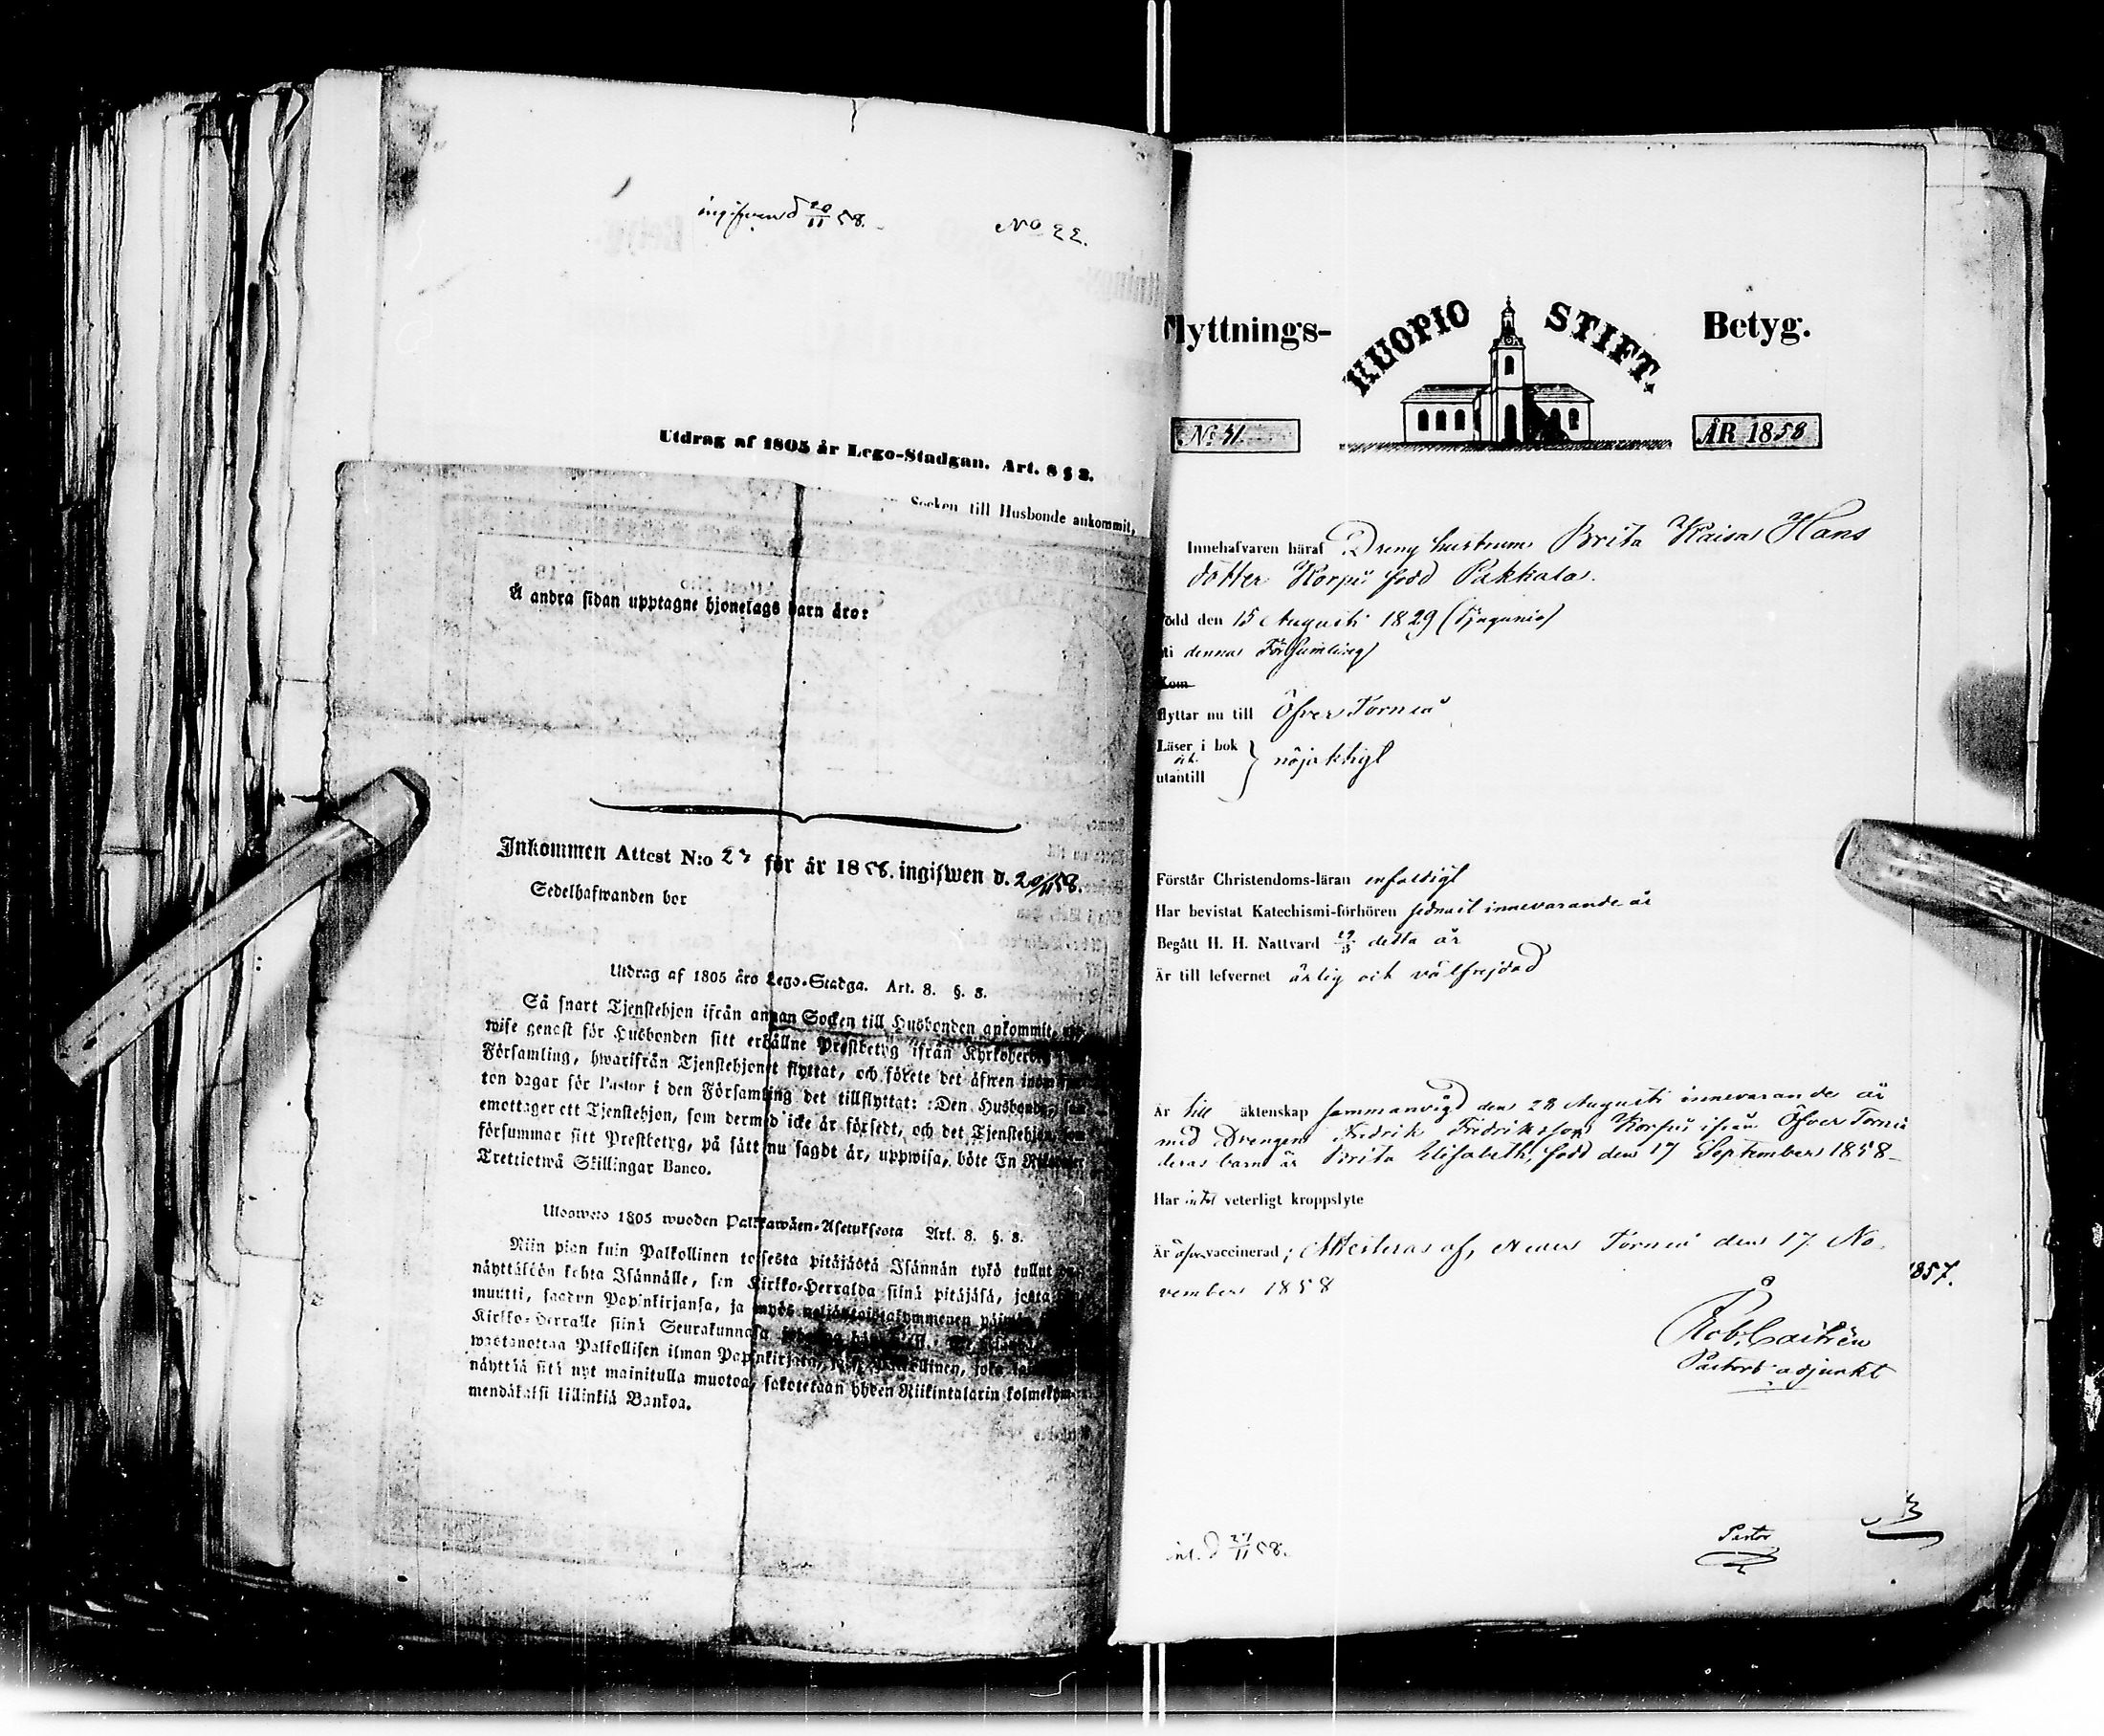 ingifven d 20/11 58.
No 22.
Utdrag af 1805 år Lego-Stadgan. Art. 8 § 3.
Socken till Husbonde ankommit,
Å andra sidan upptagne hjonelags barn äro:
Inkommen Attest N:o 23 för år 1858. ingifwen d. 20/11 58.
Sedelhafwanden bor
Utdrag af 1805 års Lego-Stadga. Art. 8. §. 3.
Så snart Tjenstehjon ifrån annan Socken till Husbonden ankommit,
wise genast för Husbonden sitt erhållne Prestbetyg ifrån
Församling, hwarifrån Tjenstehjonet flyttat, och förete det äfwen inom
ton dagar för Pastor i den Församling det tillflyttat: Den Husbonde,
emottager ett Tjenstehjon, som dermed icke är försedt, och det Tjenstehjon,
försummar sitt Prestbetyg, på sätt nu sagdt är, uppwisa, böte En
Trettiotwå Skillingar Banco.
Ulosweto 1805 wuoden Palkkawäen-Asetuksesta Art. 8. §. 3.
Niin pian kuin Palkollinen toisesta pitäjästä Isännän tykö tullut
näyttäköön kohta Isännälle, sen Kirkko-Herralda siinä pitäjäsä, josta
muutti, saadun Papinkirjansa, ja myös neljäntoistakymmenen päiwän
Kirkko-Herralle siinä Seurakunnasa
wastanottaa Palkollisen ilman Papinkirjata,
näyttää sitä nyt mainitulla muotoa, sakotetaan yhden Riikintalarin
mendäkaksi killinkiä Bankoa.
Flyttnings- KUOPIO STIFT. Betyg.
No 41
ÅR 1858
Innehafvaren häraf Dreng hustrun Brita Kaisa Hans
dotter Korpi född Pakkala.
född den 15 Augusti 1829 (Tjugunio)
i denna Församling
Kom
flyttar nu till Öfver Torneå
Läser i bok
och
utantill } nöjaktigt
Förstår Christendoms-läran enfaldigt
Har bevistat Katechismi-förhören sednast innevarande år
Begått H. H. Nattvard detta år
Är till lefvernet ärlig och välfrejdad
Är till äktenskap sammanvigd den 28 Augusti innevarande år
med Drengen Fredrik Fredriksson Korpi ifrån Öfver Torneå
deras barn är Brita Elisabeth, född den 17 September 1858
Har intet veterligt kroppslyte
Är äfven vaccinerad; Attesteras af, Neder Torneå den 17 No-
vember 1858
1857.
Rob. Castrén
Pastors adjunkt
Pastor
inl. d 27/11 58.